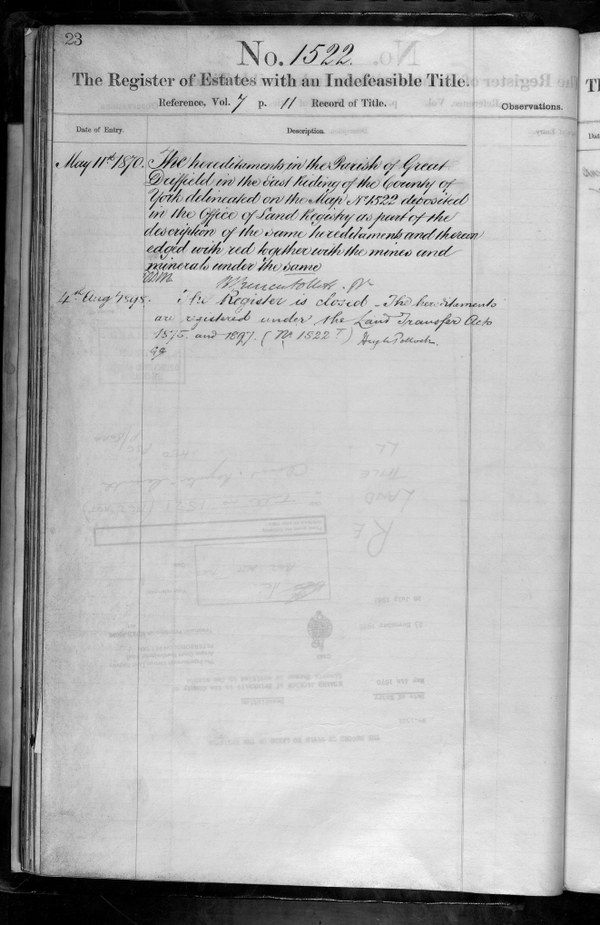 23
No. 1522.
The Register of Estates with an Indefeasible Title.
Reference, Vol. 7 p. 11 Record of Title.
Observations.
Date of Entry.
Description.
May 11th 1870.
The hereditaments in the Parish of Great
Driffield in the East Riding of the County of
York delineated on the Map No 1522 deposited
in the Office of Land Registry as part of the
description of the same hereditaments and thereon
edged with red together with the mines and
minerals under the same
4th Aug 1898.
The Register is closed - The hereditaments
are registered under the Land Transfer Acts
1875 and 1897. (No 1522T) Hugh Pollock.